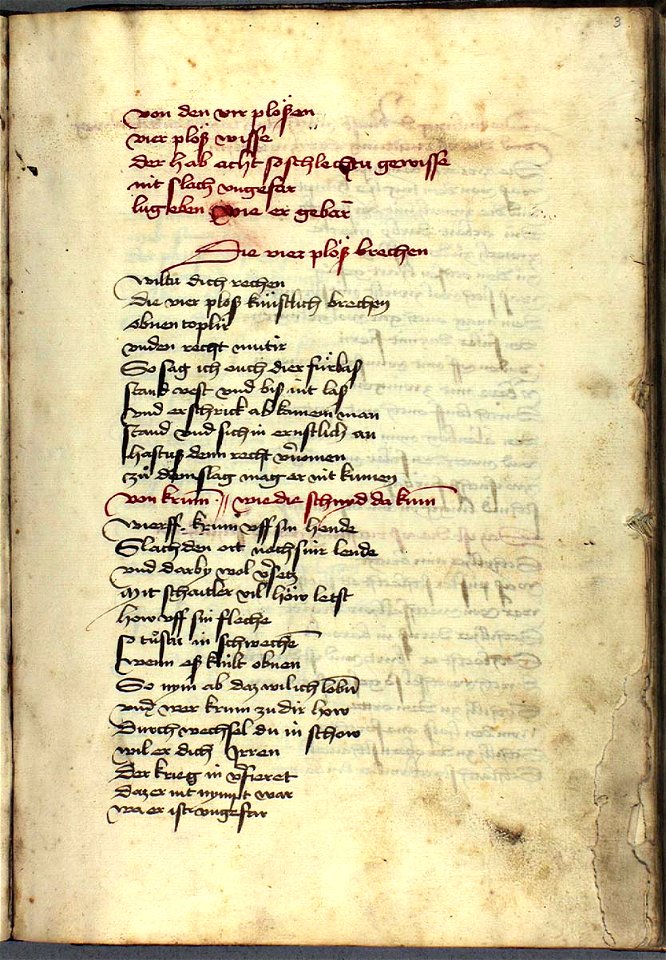 3
von den vier plößen
vier plöß wisse
der hab acht so schlechtu gewisse
nit slach ungefar
lug eben wie er gebar̄
Die vier plöß brechen
wiltu dich rechen
die vier plöß künstlich brechen
obnen toplir
unden recht mutir
So sag ich ouch dier fürbas
stand vest und bis nit las
und erschrick ab kainem man
stand und sich in ernstlich an
hastus denn recht v̄nomen
zu dem slag mag er nit kumen
von krum̄ // wie die schnyd da kum̄
wierff krum uff sin hende
Slach den ort nach sinr lende
und darby wol v̄setz
mit schaitler vil höw letst
how uff sin fleche
so tůstu in schwechē
wenn es klübt obnen
So nym ab daz wil ich lobn̄
und wer krum zu dir how
Durch wechsel du in schow
wil er dich Irren
Der krieg in v̄fieret
daz er nit nympt war
wa er ist ungefar